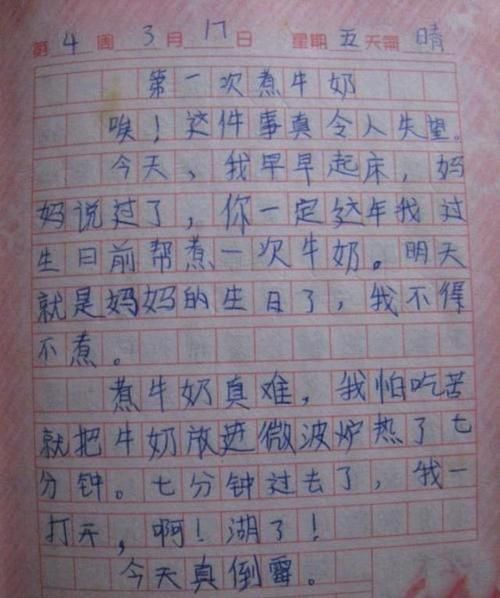 第 4 周 3 月 17 日 星期 五 天气 晴
第一次煮牛奶
唉！这件事真令人失望。
今天，我早早起床，妈
妈说过了，你一定这年我过
生日前帮煮一次牛奶。明天
就是妈妈的生日了，我不得
不煮。
煮牛奶真难，我怕吃苦
就把牛奶放进微波炉热了七
分钟。七分钟过去了，我一
打开，啊！湖了！
今天真倒霉。